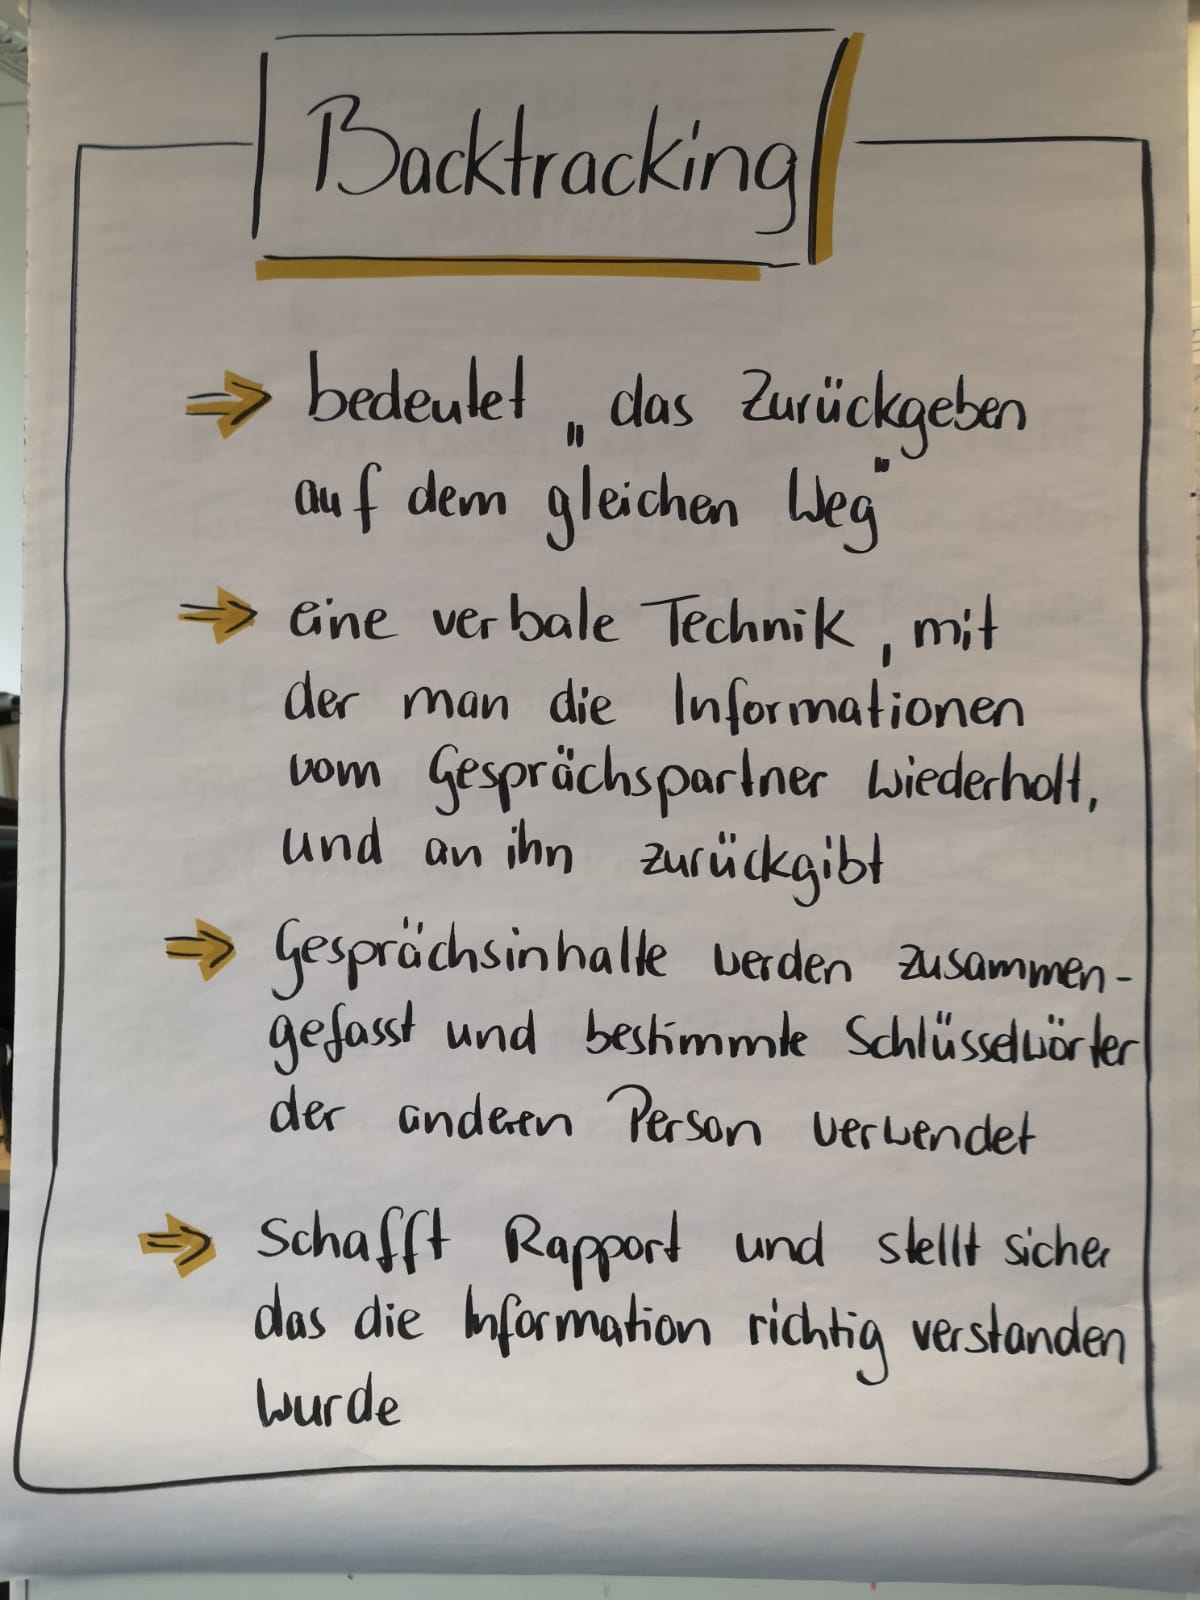 Backtracking
⇒ bedeutet „das Zurückgeben
auf dem gleichen Weg"
⇒ eine verbale Technik, mit
der man die Informationen
vom Gesprächspartner wiederholt,
und an ihn zurückgibt
⇒ Gesprächsinhalte werden zusammen-
gefasst und bestimmte Schlüsselwörter
der anderen Person verwendet
⇒ Schafft Rapport und stellt sicher
das die Information richtig verstanden
wurde